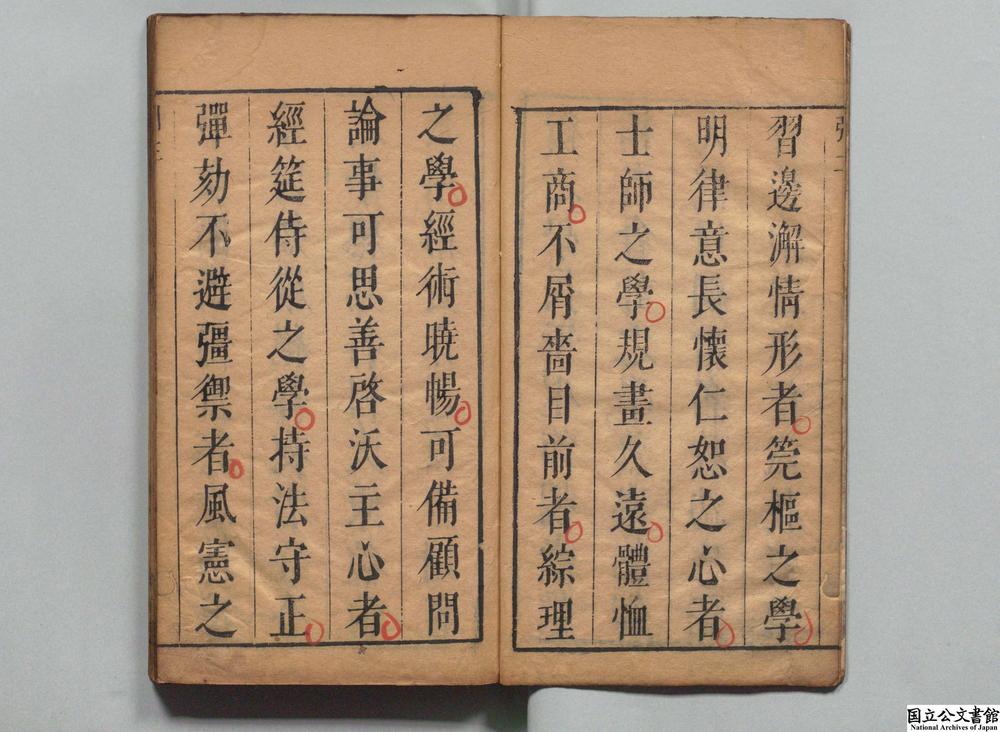 習邊澥情形者筦樞之學
明律意長懷仁恕之心者
士師之學規畫久遠體恤
工商不屑嗇目前者綜理
之學經術曉暢可備顧問
論事可思善啓沃主心者
經筵侍從之學持法守正
彈劾不避彊禦者風憲之
国立公文書館
National Archives of Japan